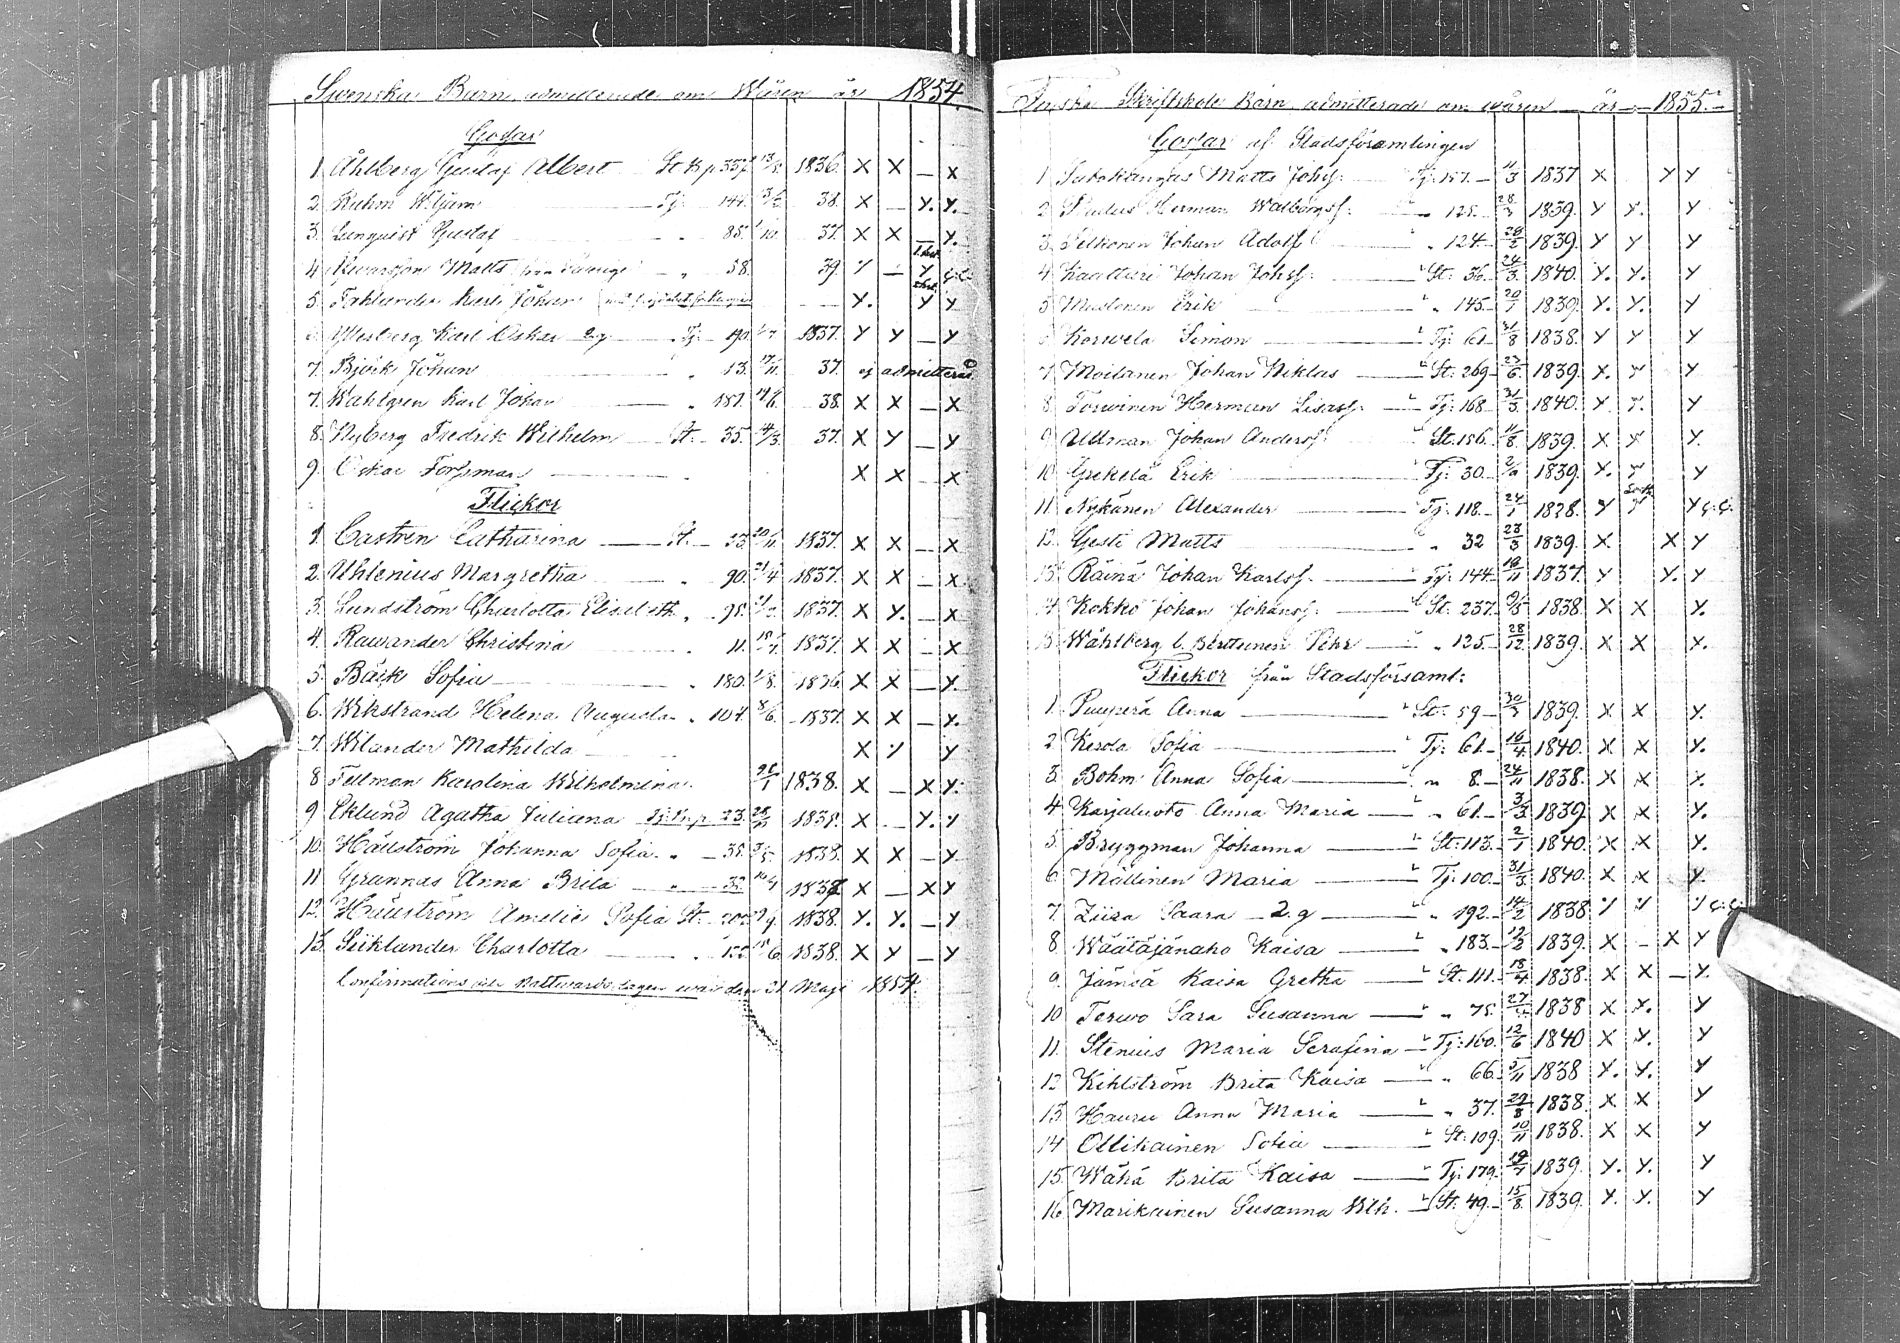 Svenska Barn admitterade om Wåren år 1854.
Gossar
1. Åhlberg Gustaf Albert St. Kp 357 13/ 1836. X X — X
2. Ruhm Tj. 144. 38. X — Y. Y.
3. Lunquist Gustaf " 85. 37. X X — Y.
4. Matts " 58. 39. Y — Y
5. Karl Johan Y. Y Y
Karl Oskar 2 g Tj. 190. 1837. Y Y — Y
7. Björk Johan " 13. 17/11 37. ej admitterad
7. Wahlgren Karl Johan " 187. 38. X X — X
8. Nyberg Fredrik Wilhelm St. 35. 14/3. 37. X Y — Y
9. Oskar Forssman X X X
Flickor
1. Castren Catharina St. 1837. X X — X
2. Uhlenius Margretha " 90. 21/4 1837. X X — X
3. Lundström Charlotta Elisabeth " 98. 1837. X Y. — X
4. Rawander Christina " 11. 1837. X X — X
5. Bäck Sofia " 180. 1/8. 1836. X X — Y.
6. Wikstrand Helena Augusta " 107. 8/6. 1837. X X — Y.
7. Wilander Mathilda X Y Y
8 Fellman Karolina Wilhelmina. 1838. X — X Y.
9 Eklund Agatha Juliana Tj. Kp. 23. 1838. X — Y. Y
10. Hällström Johanna Sofia " — 38. 1838. X X — Y
11 Grannas Anna Brita " 32. 1837 X — X Y
12. Hällström Amelie Sofia St. 1838. Y. Y. — Y
13. Siiklander Charlotta 1838. X Y — Y
Confirmations och Nattvardsdagen war den 21 Maji 1854.
Finska Skriftskole Barn admitterade om wåren år 1855.
Gossar af Stadsförsamlingen
1 Matts Johss. Tj. 157. 11/3 1837 X Y Y
2 Herman Walborgss. " 125. 28/ 1839. Y Y. Y
3. Pelkonen Johan Adolf " 124. 1839. Y Y Y
4 Kaattari Johan Johss. St. 36. 24/3. 1840. Y. Y. Y
5 Mustonen Erik " 145. 20/1 1839. Y. Y. Y
6 Korwela Simon Tj. 61. 21/8 1838. Y Y Y
7 Moilanen Johan Niklas St. 269 23/6. 1839. X. Y Y
8. Torwinen Herman Lisass. Tj. 168. 31/3. 1840. Y. Y. Y
9. Ullman Johan Anderss. St. 156. 11/8 1839. X Y Y.
10. Grekelä Erik Tj. 30. 1839. X. Y Y
11. Nykänen Alexander Tj. 118. 24/1 1828. Y Y Y
12. Gesti Matts " 32 23/3 1839. X. X Y
13. Räinä Johan Karlss. Tj. 144. 19/11 1837. Y Y. Y
14. Kokko Johan Johanss. St. 237. 9/5 1838. X X Y.
15. Wåhlberg l. Berttunen Pehr " 125. 28/12 1839. X X Y.
Flickor från Stadsförsaml:
1. Puuperä Anna St. 59 1839. X X Y.
2. Kesola Sofia Tj. 61. 16/4 1840. X X Y.
3. Bohm Anna Sofia " 8. 24/11 1838. X X Y.
4. Karjaluoto Anna Maria " 61. 3/3 1839. X X Y.
5. Bryggman Johanna St. 113. 2/1 1840. X. X Y.
6. Mällinen Maria Tj. 100. 31/3. 1840. X X Y.
7. Ziiza Saara — 2. g " 192. 14/2 1838. Y Y Y
8 Wäätäjänaho Kaisa " 183. 12/2 1839. X — X Y
9. Jämsä Kaisa Gretha St. 111. 18/4 1838. X X — Y.
10 Terwo Sara Susanna " 75. 1838 X Y. Y
11. Stenius Maria Serafina Tj. 160. 12/6 1840 X Y. Y
12 Kihlström Brita Kaisa " 66. 5/11 1838 Y. Y. Y
13. Hauru Anna Maria " 37. 29/8 1838. X X Y
14 Ollikainen Sofia St. 109. 10/11 1838. X X Y
15. Wähä Brita Kaisa Tj. 179. 19/7 1839. Y. Y. Y
16 Marikainen Susanna Wlh. St. 49. 15/8. 1839. Y. Y. Y